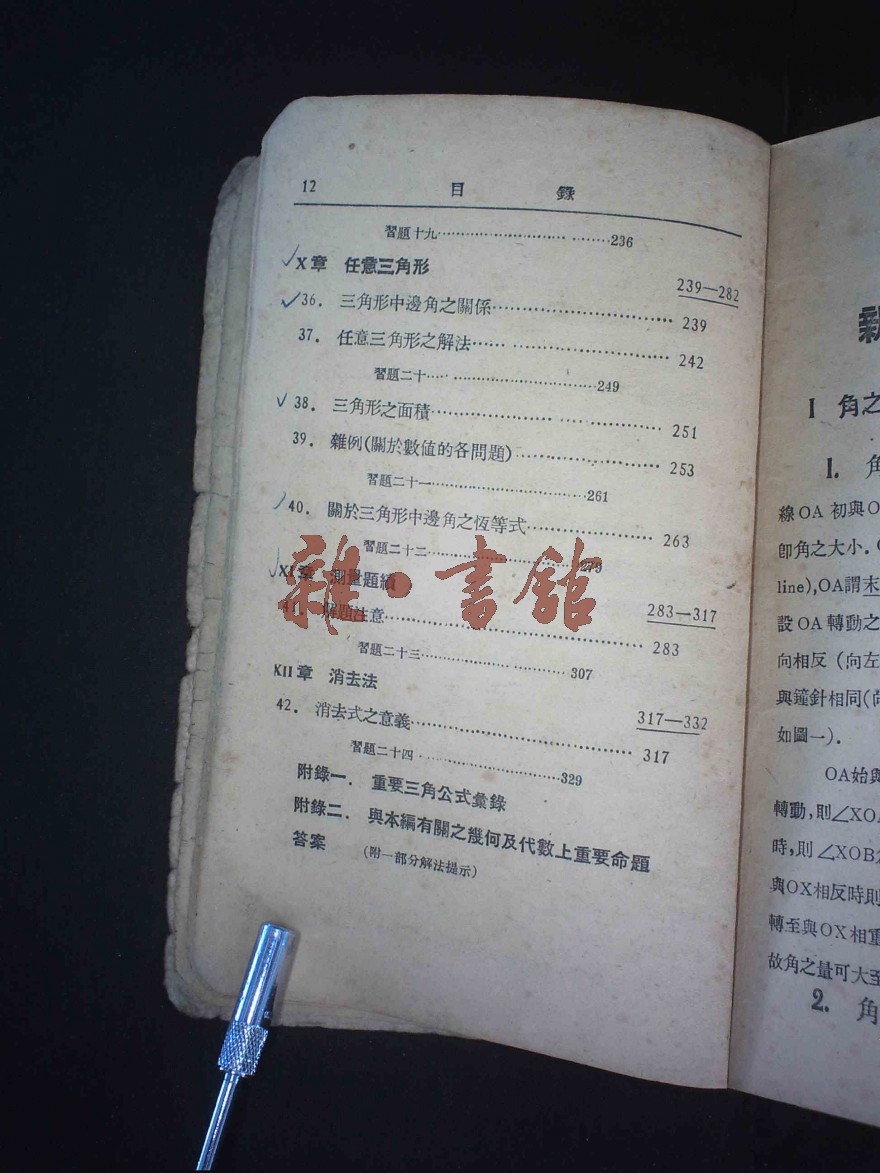 12 目錄
習題十九…………………………236
X章 任意三角形
239—282
36. 三角形中邊角之關係…………………………239
37. 任意三角形之解法…………………………242
習題二十…………………………249
38. 三角形之面積…………………………251
39. 雜例(關於數值的各問題)…………………………253
習題二十一…………………………261
40. 關於三角形中邊角之恆等式…………………………263
習題二十二…………………………279
XI章 測量題續
283—317
41. 解題注意…………………………283
習題二十三…………………………307
XII章 消去法
317—332
42. 消去式之意義…………………………317
習題二十四…………………………329
附錄一. 重要三角公式彙錄
附錄二. 與本編有關之幾何及代數上重要命題
答案 (附一部分解法提示)
雜·書館
I 角之
1. 角
線OA 初與O
卽角之大小.
line),OA謂末
設OA轉動之
向相反(向左
與鐘針相同(向
如圖一).
OA始與
轉動,則∠XOA
時,則∠XOB
與OX相反時則
轉至與OX相重
故角之量可大至
2. 角